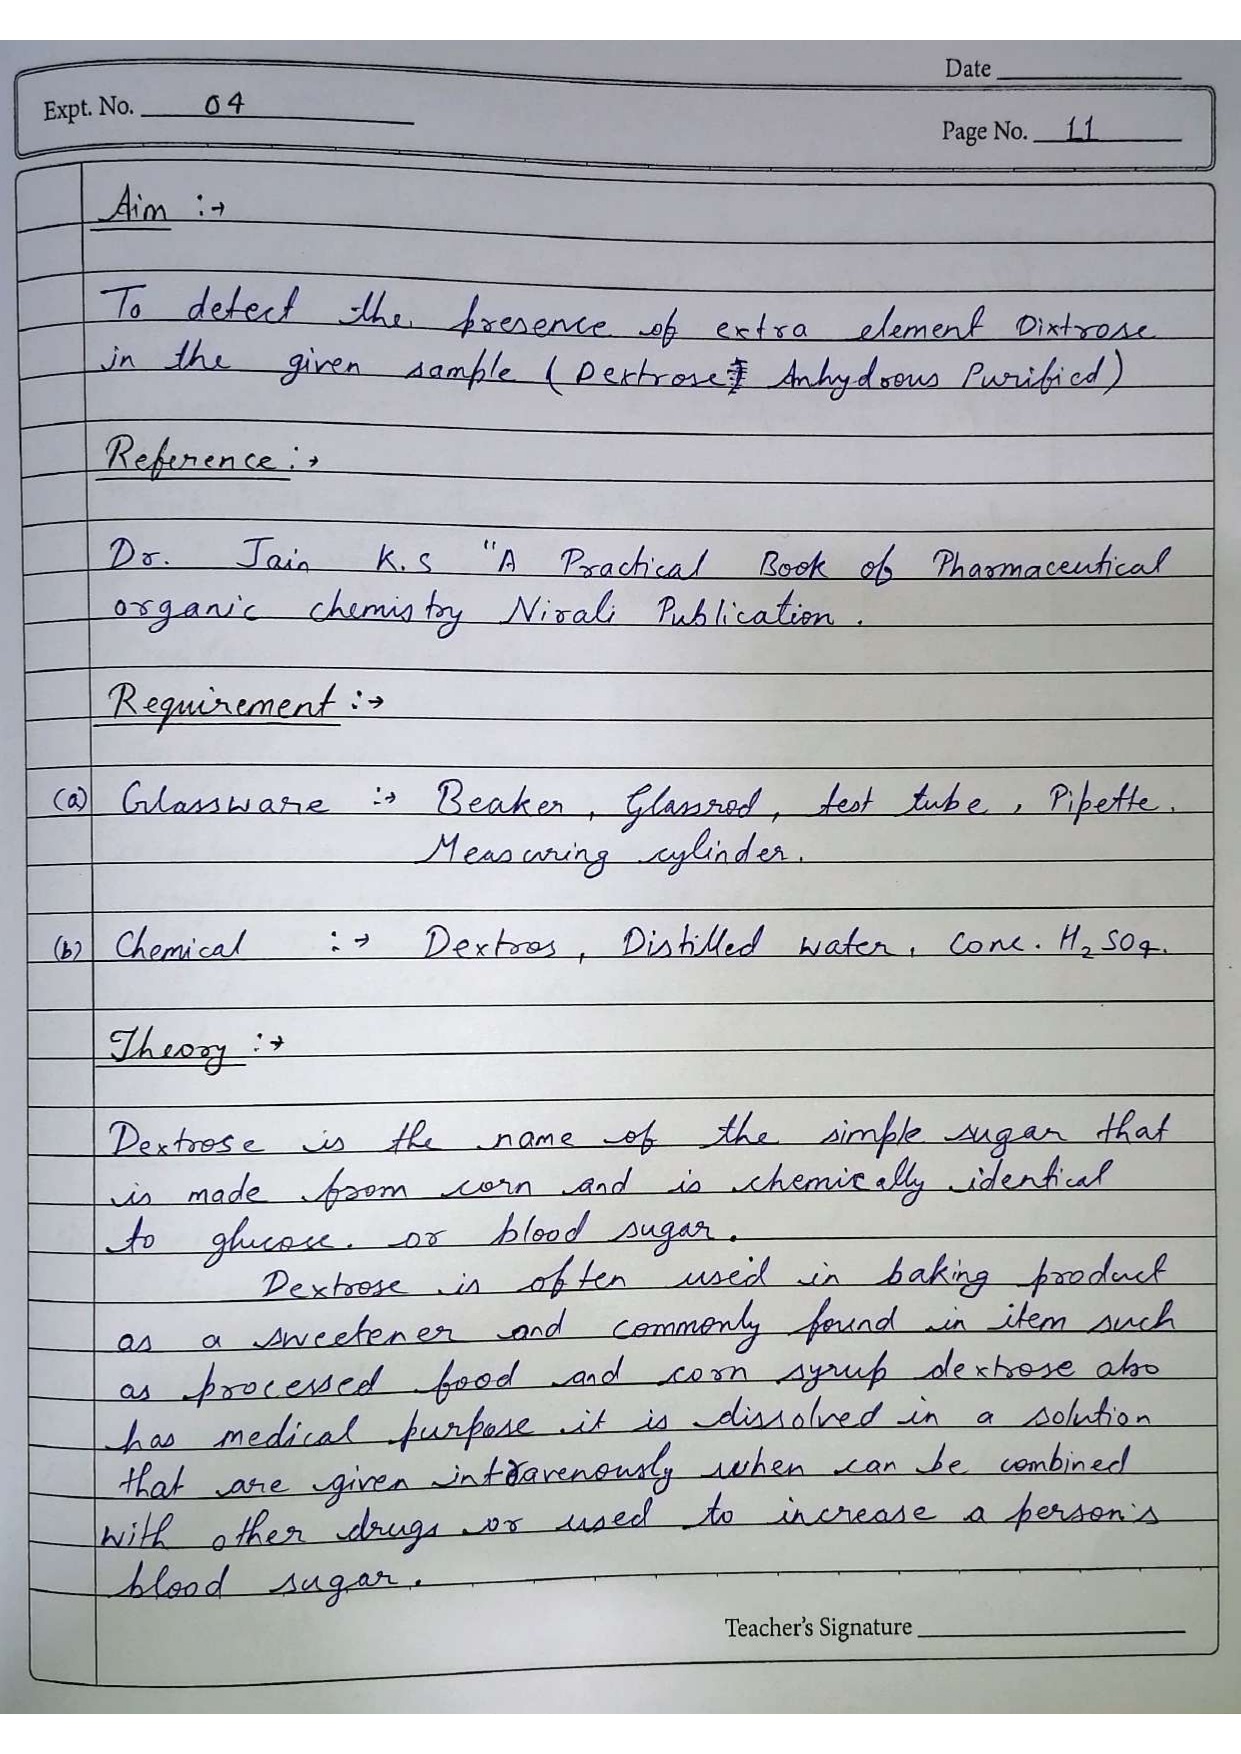 Date
Expt. No. 04
Page No. 11
Aim :→
To detect the presence of extra element Dixtrose
in the given sample (Dextrose Anhydrous Purified)
Reference :→
Dr. Jain K.S "A Practical Book of Pharmaceutical
organic chemistry Nirali Publication.
Requirement :→
(a) Glassware :→ Beaker, Glassrod, test tube, Pipette.
Measuring cylinder.
(b) Chemical :→ Dextros, Distilled water, conc. H₂SO₄.
Theory :→
Dextrose is the name of the simple sugar that
is made from corn and is chemically identical
to glucose. or blood sugar.
Dextrose is often used in baking product
as a sweetener and commonly found in item such
as processed food and corn syrup dextrose also
has medical purpose it is dissolved in a solution
that are given intravenously when can be combined
with other drugs or used to increase a person's
blood sugar.
Teacher's Signature